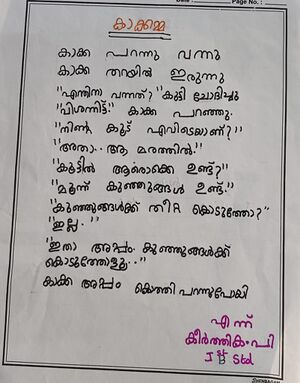 Page No. :
കാക്കമ്മ
കാക്ക പറന്നു വന്നു
കാക്ക തറയിൽ ഇരുന്നു
"എന്തിനാ വന്നത്?" കുട്ടി ചോദിച്ചു
"വിശന്നിട്ട്." കാക്ക പറഞ്ഞു.
"നിന്റെ കൂട് എവിടെയാണ്?"
"അതാ.. ആ മരത്തിൽ."
"കൂട്ടിൽ ആരൊക്കെ ഉണ്ട്?"
"മൂന്ന് കുഞ്ഞുങ്ങൾ ഉണ്ട്."
"കുഞ്ഞുങ്ങൾക്ക് തീറ്റ കൊടുത്തോ?"
"ഇല്ല."
"ഇതാ അപ്പം. കുഞ്ഞുങ്ങൾക്ക്
കൊടുത്തോളൂ.."
കാക്ക അപ്പം കൊത്തി പറന്നുപോയി
എന്ന്
കീർത്തിക. പി
I B Std
SHENBAGAM